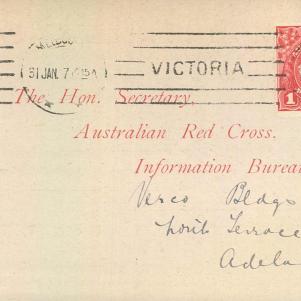 31 JAN. 7 15A
VICTORIA
The Hon. Secretary,
Australian Red Cross.
Information Burea
Verco Bldgs
North Terrace
Adela
1